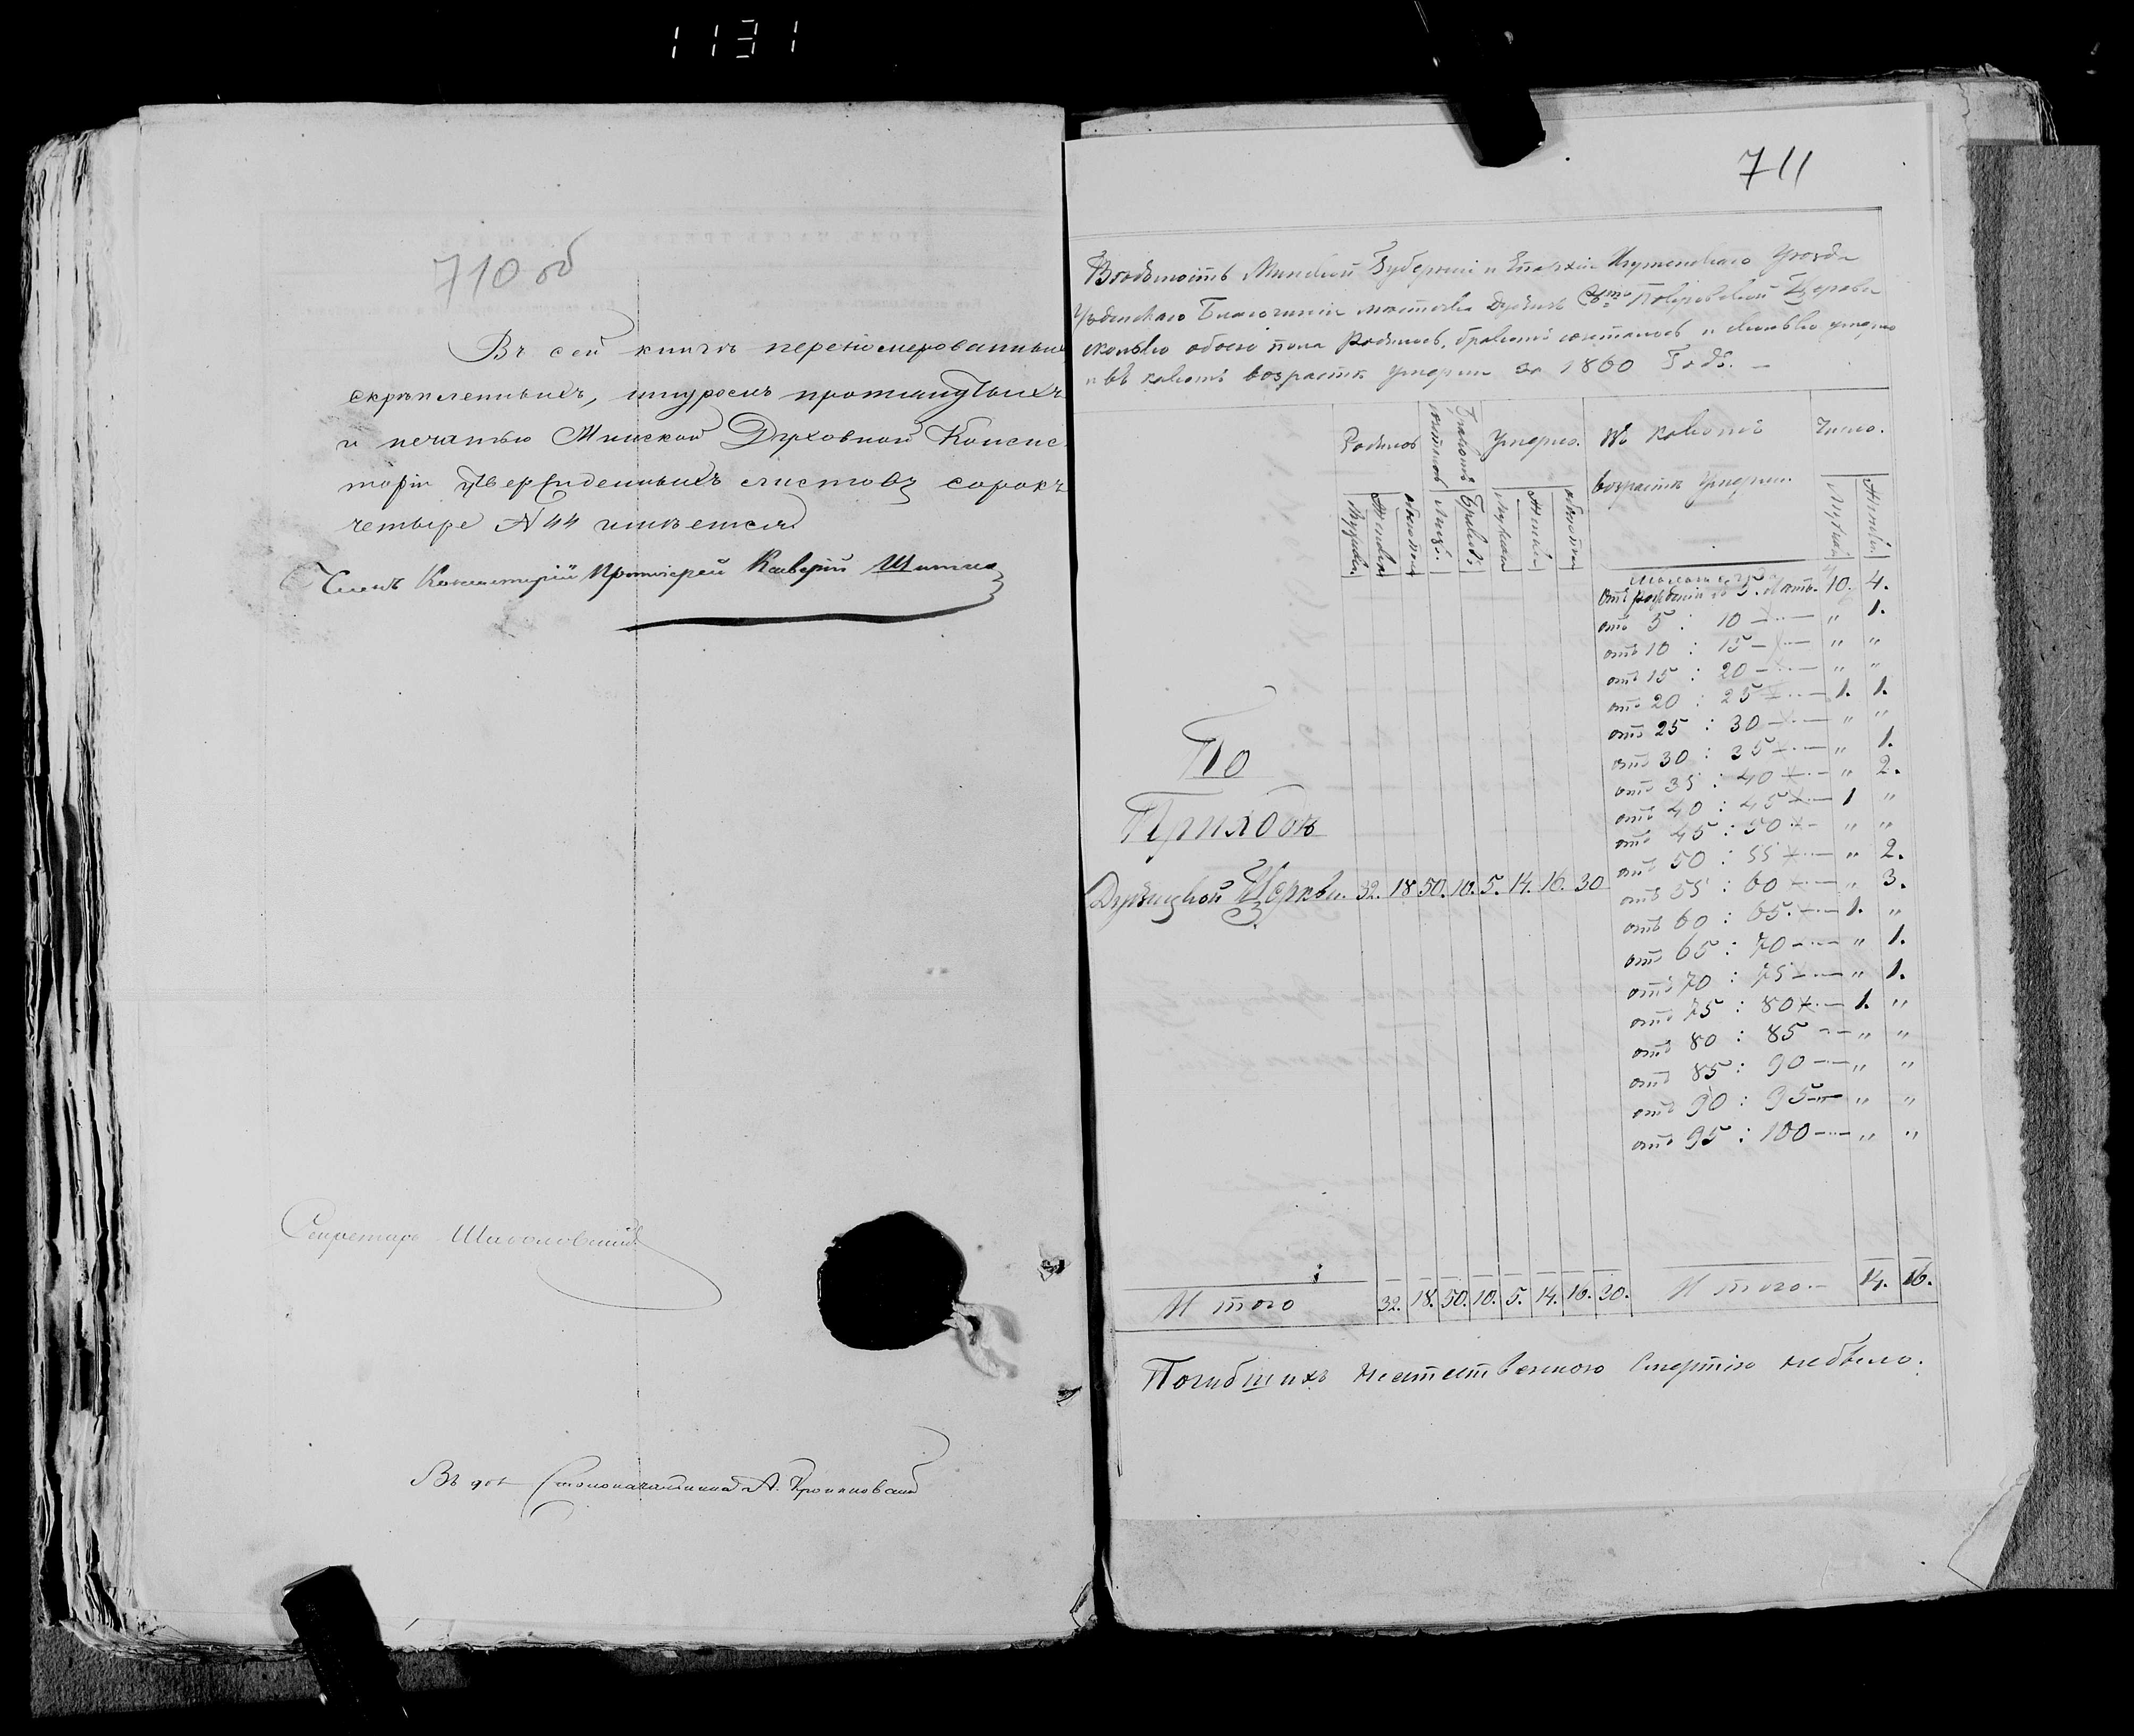 1131
710 об
Въ сей книгѣ перенумерованныхъ
скрѣпленныхъ, шнуромъ протянутыхъ
и печатью Минской Духовной Консис
торіи утвержденныхъ листовъ сорокъ
четыре № 44 имѣется
Членъ Консисторіи Протоіерей
Секретарь
Въ дол Столоначальника А.
711
Вѣдомость Минской Губерніи и Епархіи Игуменскаго Уѣзда
Узденскаго Благочинія мѣстечка Покровской Церкви
сколько обоего пола родилось, браковъ состоялось и сколько умерло
и въ какомъ возрастѣ умерли за 1860 Годъ.
Родилось Браковъ состоялось Умерло. Въ какомъ возрастѣ умерли. Число.
Мужска. Женска обоего пола Браков. Мужска Женска обоего пола Мужска Женска
отъ рожденія до 5. лѣтъ. 10. 4.
отъ 5 : 10 — " 1.
отъ 10 : 15 — " "
отъ 15 : 20 — " "
отъ 20 : 25 — 1. 1.
отъ 25 : 30 — " "
отъ 30 : 35 — " 1.
отъ 35 : 40 — " 2.
отъ 40 : 45 — 1 "
отъ 45 : 50 — " "
отъ 50 : 55 — " 2.
отъ 55 : 60 — " 3.
отъ 60 : 65 — 1. "
отъ 65 : 70 — " 1.
отъ 70 : 75 — " 1.
отъ 75 : 80 — 1. "
отъ 80 : 85 — " "
отъ 85 : 90 — " "
отъ 90 : 95 — " "
отъ 95 : 100 — " "
По
Приходѣ
Церкви. 32. 18 50. 10. 5. 14. 16. 30
Итого 32. 18. 50. 10. 5. 14. 16. 30. Итого. 14. 16.
Погибшихъ неестественною смертію небыло.